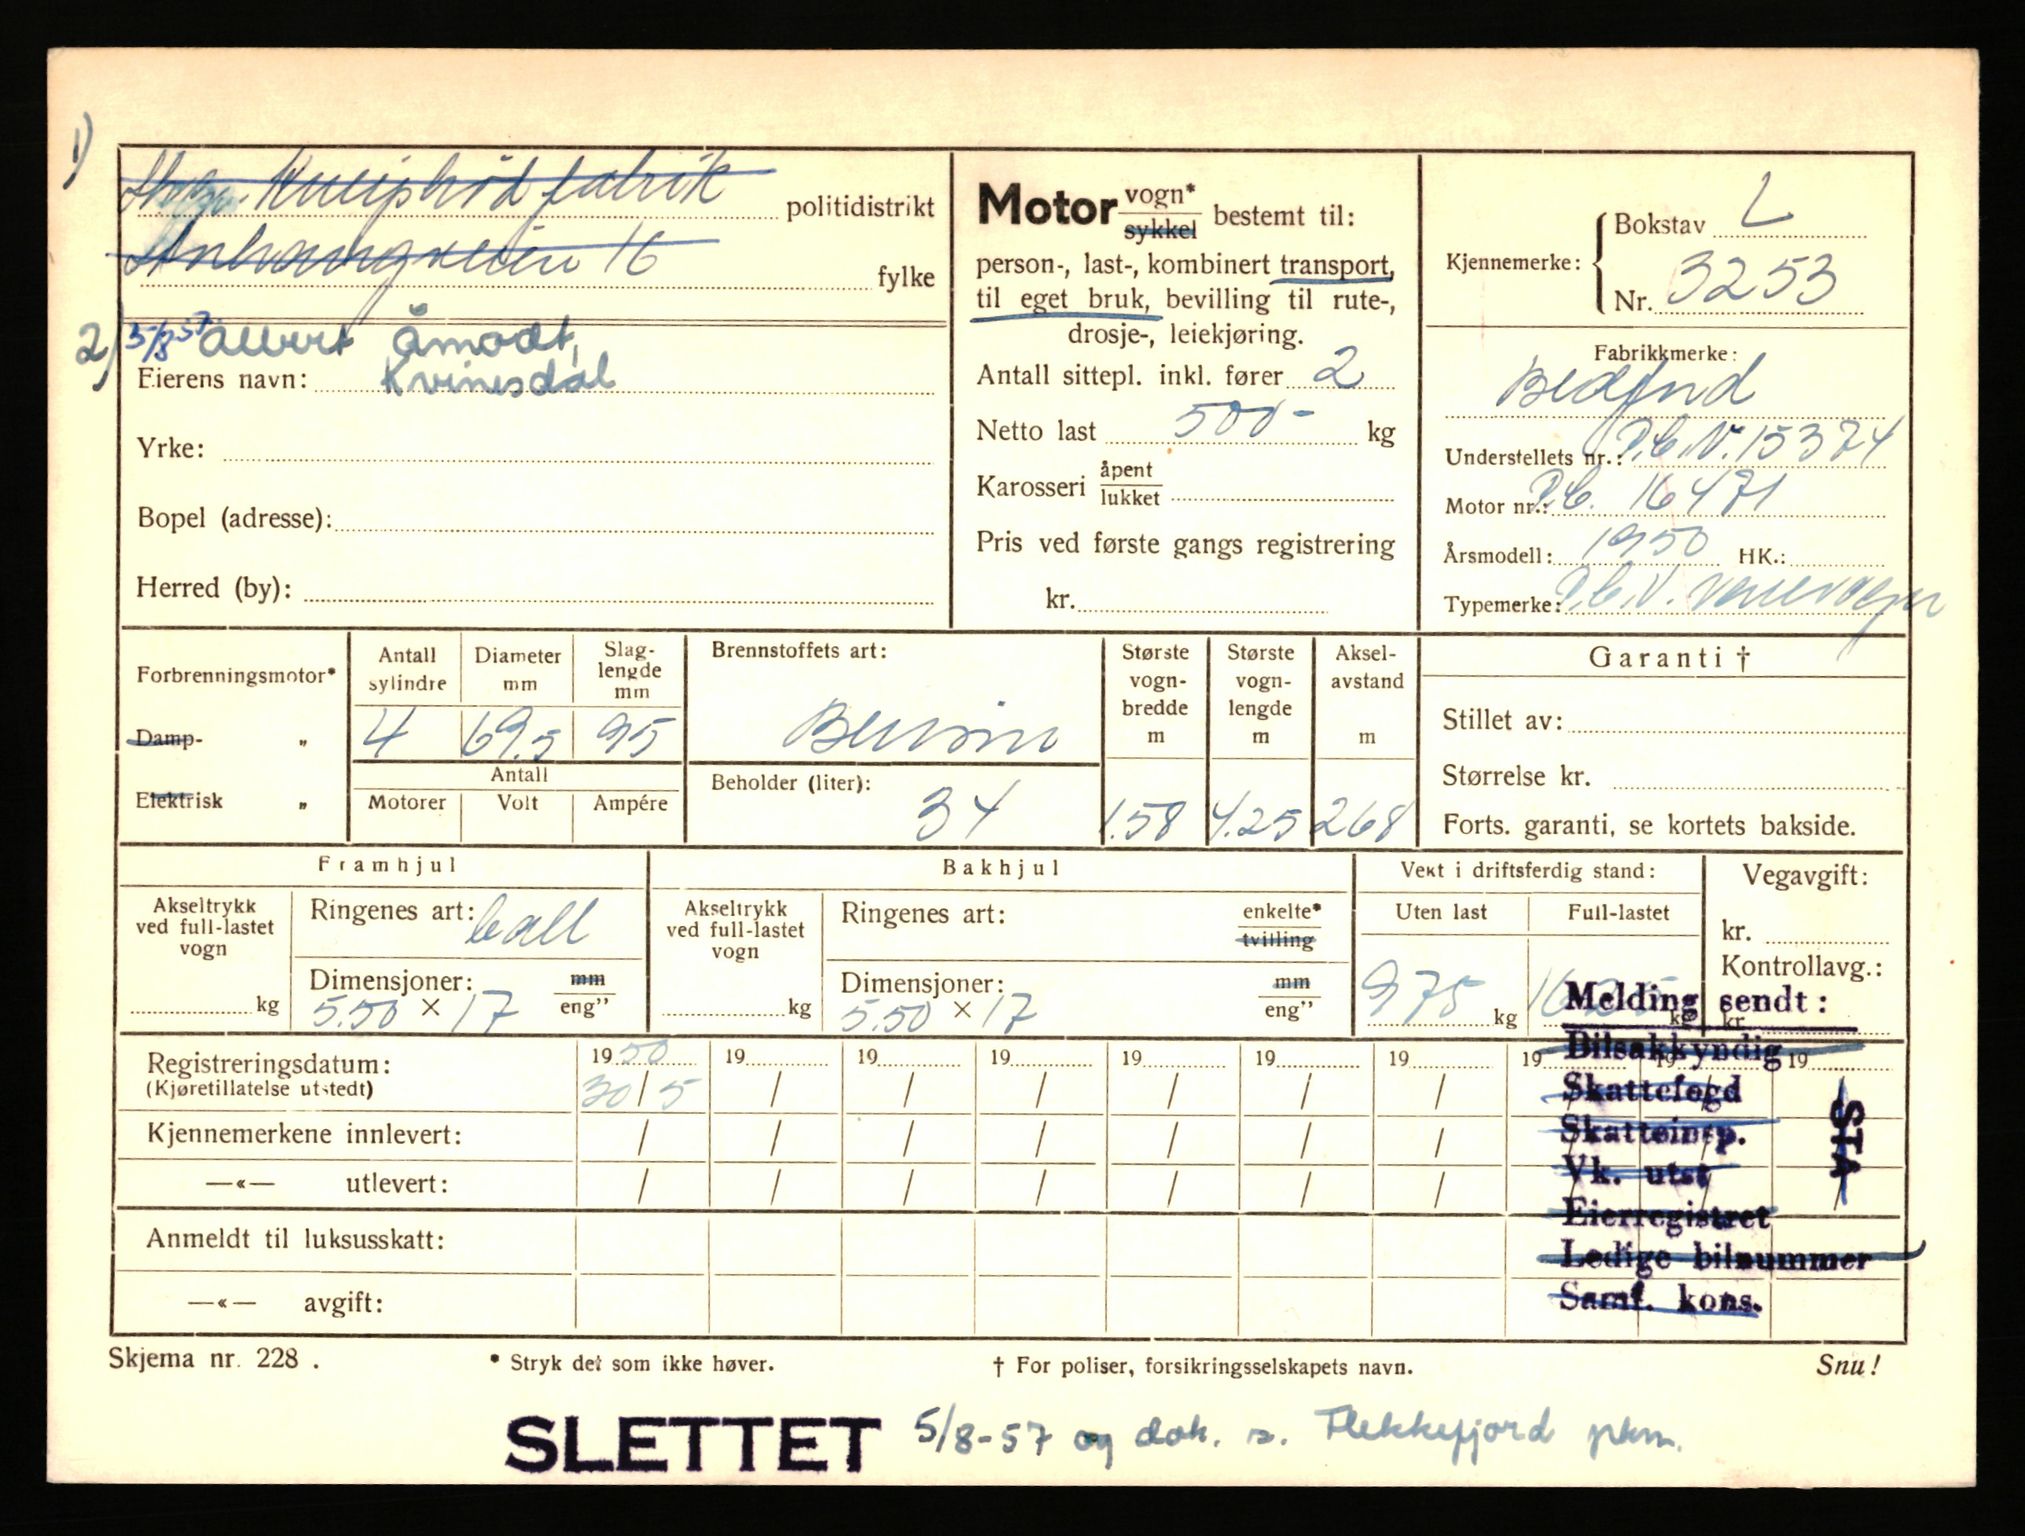 1)
Kneipbrød fabrik politidistrikt
16 fylke
2) 5/8 57 Albert Åmodt,
Eierens navn: Kvinesdal
Yrke:
Bopel (adresse):
Herred (by):
Motor vogn* sykkel bestemt til:
person-, last-, kombinert transport,
til eget bruk, bevilling til rute-,
drosje-, leiekjøring.
Antall sittepl. inkl. fører 2
Netto last 500- kg
Karosseri åpent lukket
Pris ved første gangs registrering
kr.
Kjennemerke: Bokstav L
Nr. 3253
Fabrikkmerke:
Bedford
Understellets nr.: P.C.V. 15374
Motor nr.: P.C. 16471
Årsmodell: 1950 HK.:
Typemerke: P.C.V. varevogn
Forbrenningsmotor*
Damp- "
Elektrisk "
Antall sylindre
Diameter mm
Slag-lengde mm
4 69,5 95
Antall
Motorer Volt Ampére
Brennstoffets art:
Bensin
Beholder (liter):
34
Største vogn-bredde m
1.58
Største vogn-lengde m
4.25
Aksel-avstand m
268
Garanti †
Stillet av:
Størrelse kr.
Forts. garanti, se kortets bakside.
Framhjul
Akseltrykk ved full-lastet vogn
kg
Ringenes art: ball
Dimensjoner: mm
5.50 × 17 eng"
Bakhjul
Akseltrykk ved full-lastet vogn
kg
Ringenes art: enkelte* tvilling
Dimensjoner: mm
5.50 × 17 eng"
Vekt i driftsferdig stand:
Uten last Full-lastet
975 kg kg
Vegavgift:
kr.
Kontrollavg.:
kr.
Registreringsdatum: 19 50 19 19 19 19 19 19 19 19 19
(Kjøretillatelse utstedt) 30/5 / / / / / /
Kjennemerkene innlevert: / / / / / / /
—«— utlevert: / / / / / / /
Anmeldt til luksusskatt:
—«— avgift:
Melding sendt:
Bilsakkyndig
Skattefogd
Skatteinsp.
Vk. utst
Eierregistret
Ledige bilnummer
Samf. kons.
STA
Skjema nr. 228 .
* Stryk det som ikke høver.
† For poliser, forsikringsselskapets navn.
Snu!
SLETTET 5/8-57 og dok. s. Flekkefjord pkm.